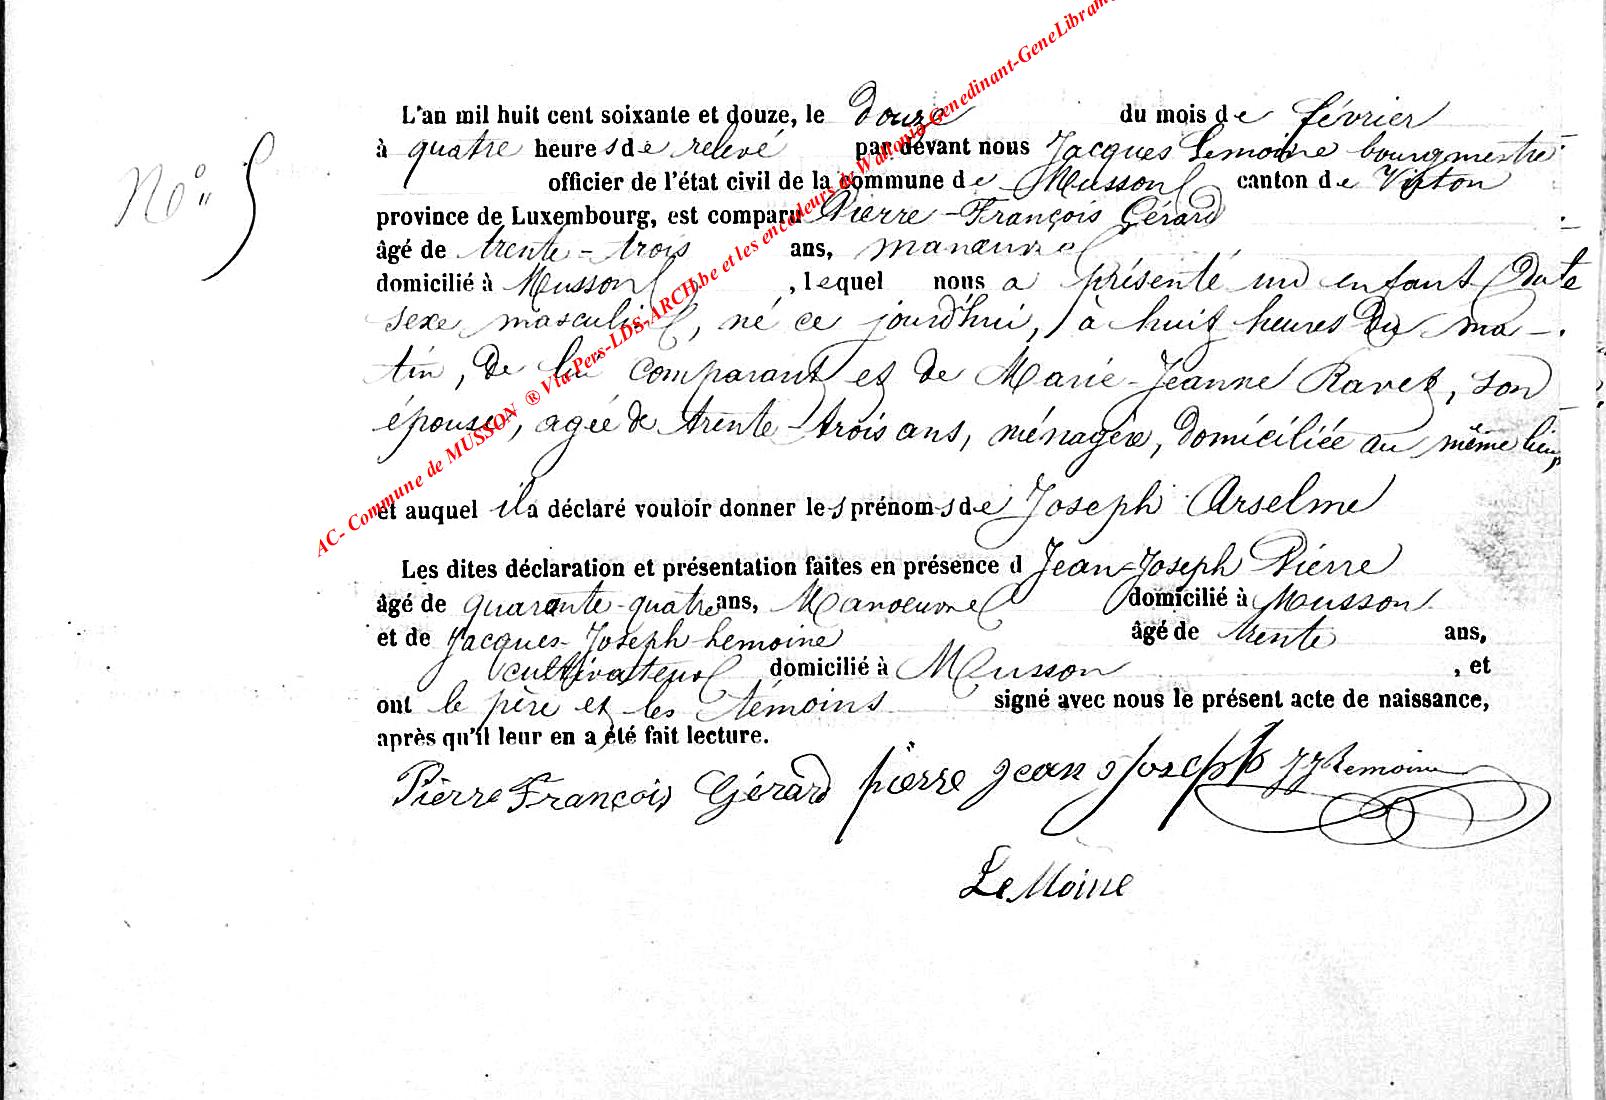 N° 5
L'an mil huit cent soixante et douze, le douze du mois de février
à quatre heures de relevé par devant nous Jacques Lemoine bourgmestre
officier de l'état civil de la commune de Musson canton de Virton
province de Luxembourg, est comparu Pierre-François Gérard
âgé de trente-trois ans, manœuvre
domicilié à Musson, lequel nous a présenté un enfant du
sexe masculin, né ce jourd'hui, à huit heures du ma-
tin, de lui comparant et de Marie-Jeanne Ravet, son
épouse, agée de trente-trois ans, ménagère, domiciliée au même lieu,
et auquel il a déclaré vouloir donner les prénoms de Joseph Arselme
Les dites déclaration et présentation faites en présence d Jean-Joseph Pierre
âgé de quarante-quatre ans, Manoeuvre domicilié à Musson
et de Jacques-Joseph Lemoine âgé de trente ans,
cultivateur domicilié à Musson, et
ont le père et les témoins signé avec nous le présent acte de naissance,
après qu'il leur en a été fait lecture.
Pierre François Gérard pierre jean joseph JJLemoine
LeMoine
AC- Commune de MUSSON ® Via Pers-LDS-ARCH.be et les encodeurs de Wallonia-Genedinant-GeneLibram